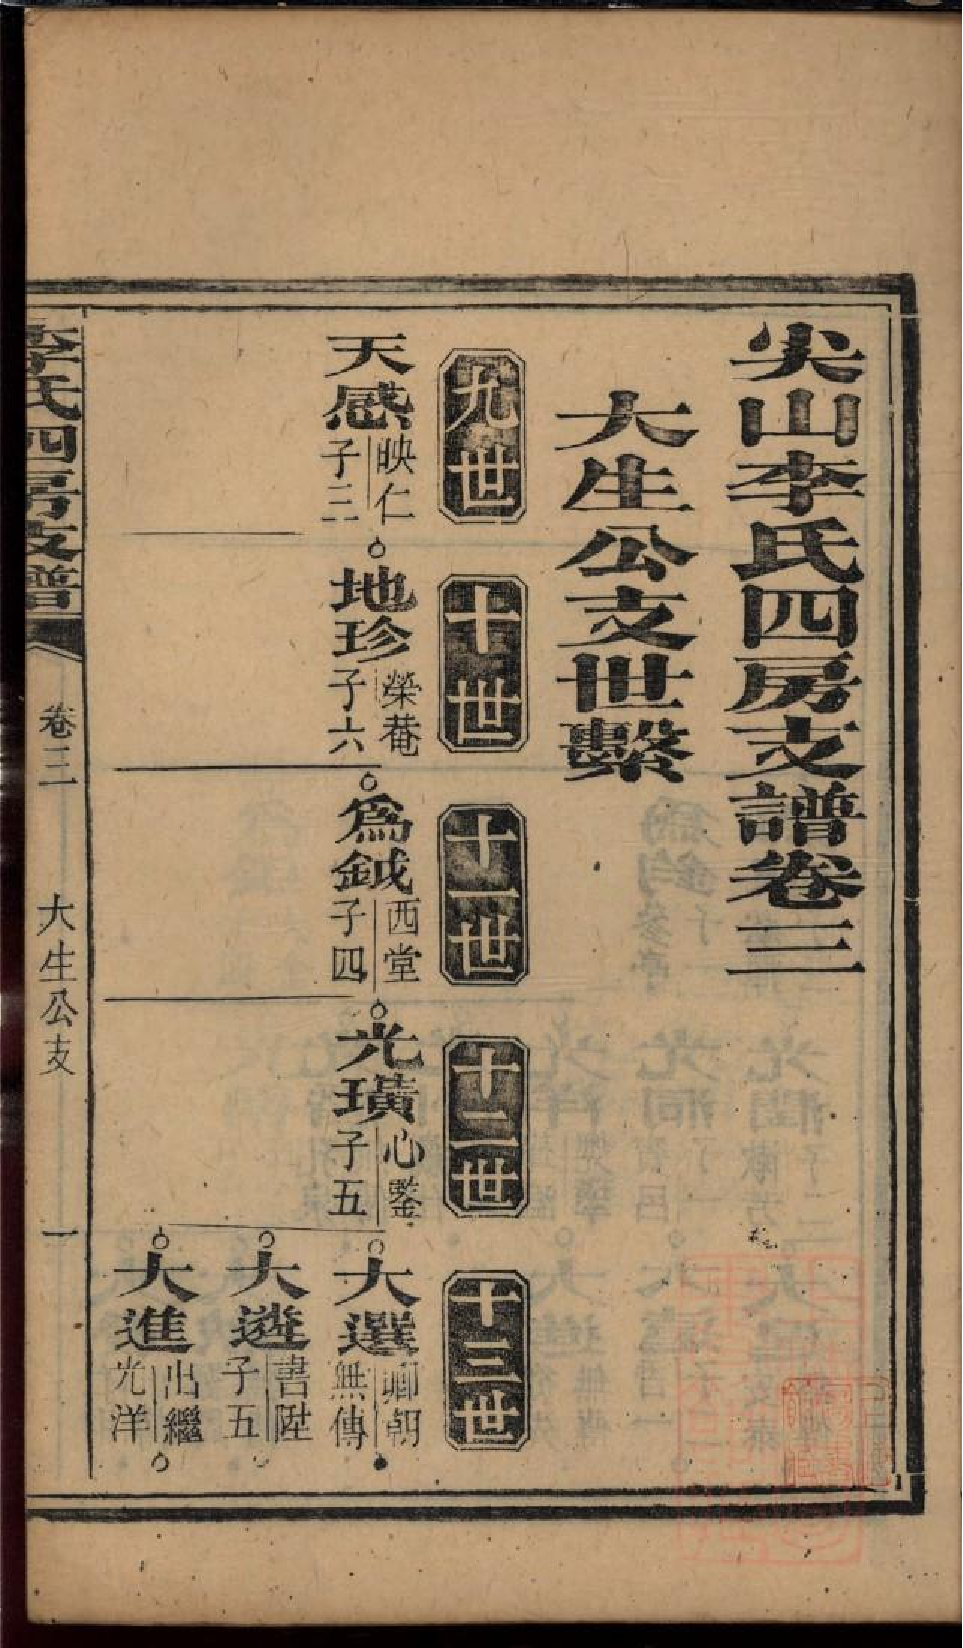 尖山李氏四房支譜卷三
大生公支世繫
九世
十世
十一世
十二世
十三世
天感
映仁
子三
地珍
榮菴
子六
為鉞
西堂
子四
光璜
心鑒
子五
大選
卿朝
無傳
大遴
書陞
子五
大進
出繼
光洋
李氏四房支譜
卷三
大生公支
一